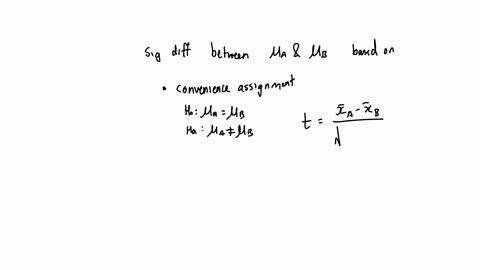 sig diff between μA & μB based on
• convenience assignment
H₀: μA = μB
Ha: μA ≠ μB
t = x̄A - x̄B / √